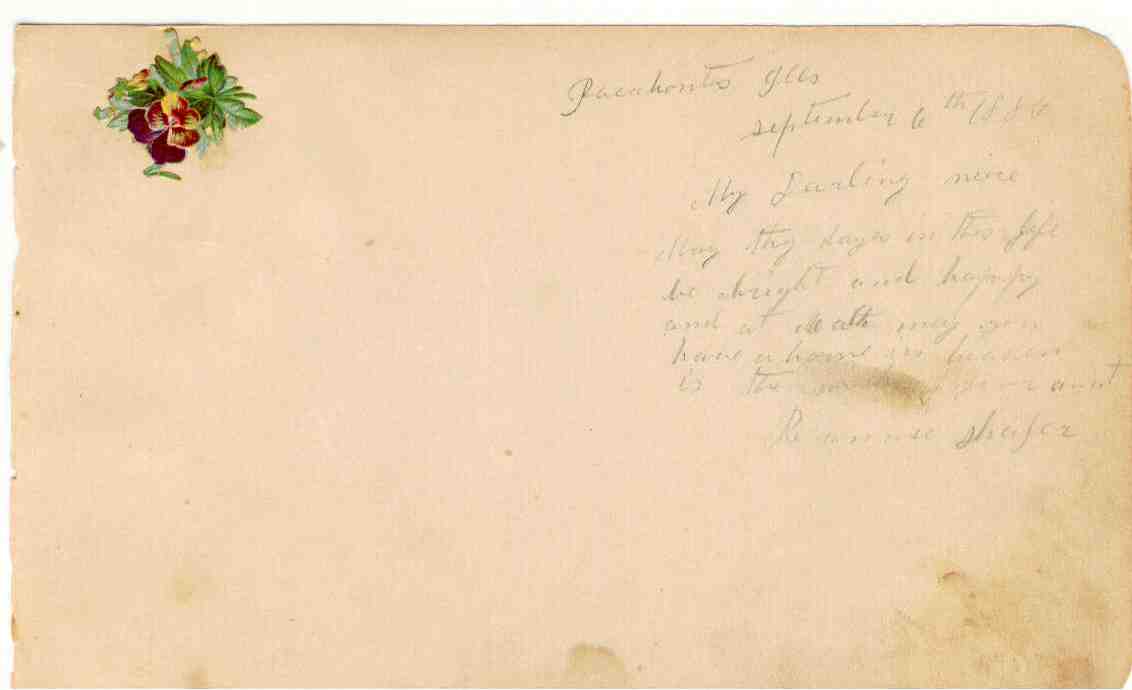 Pocahontas Ills
September 6th 1886
My Darling niece
May thy days in this life
be bright and happy
and at death may you
have a home in heaven
is the your aunt
Shafer